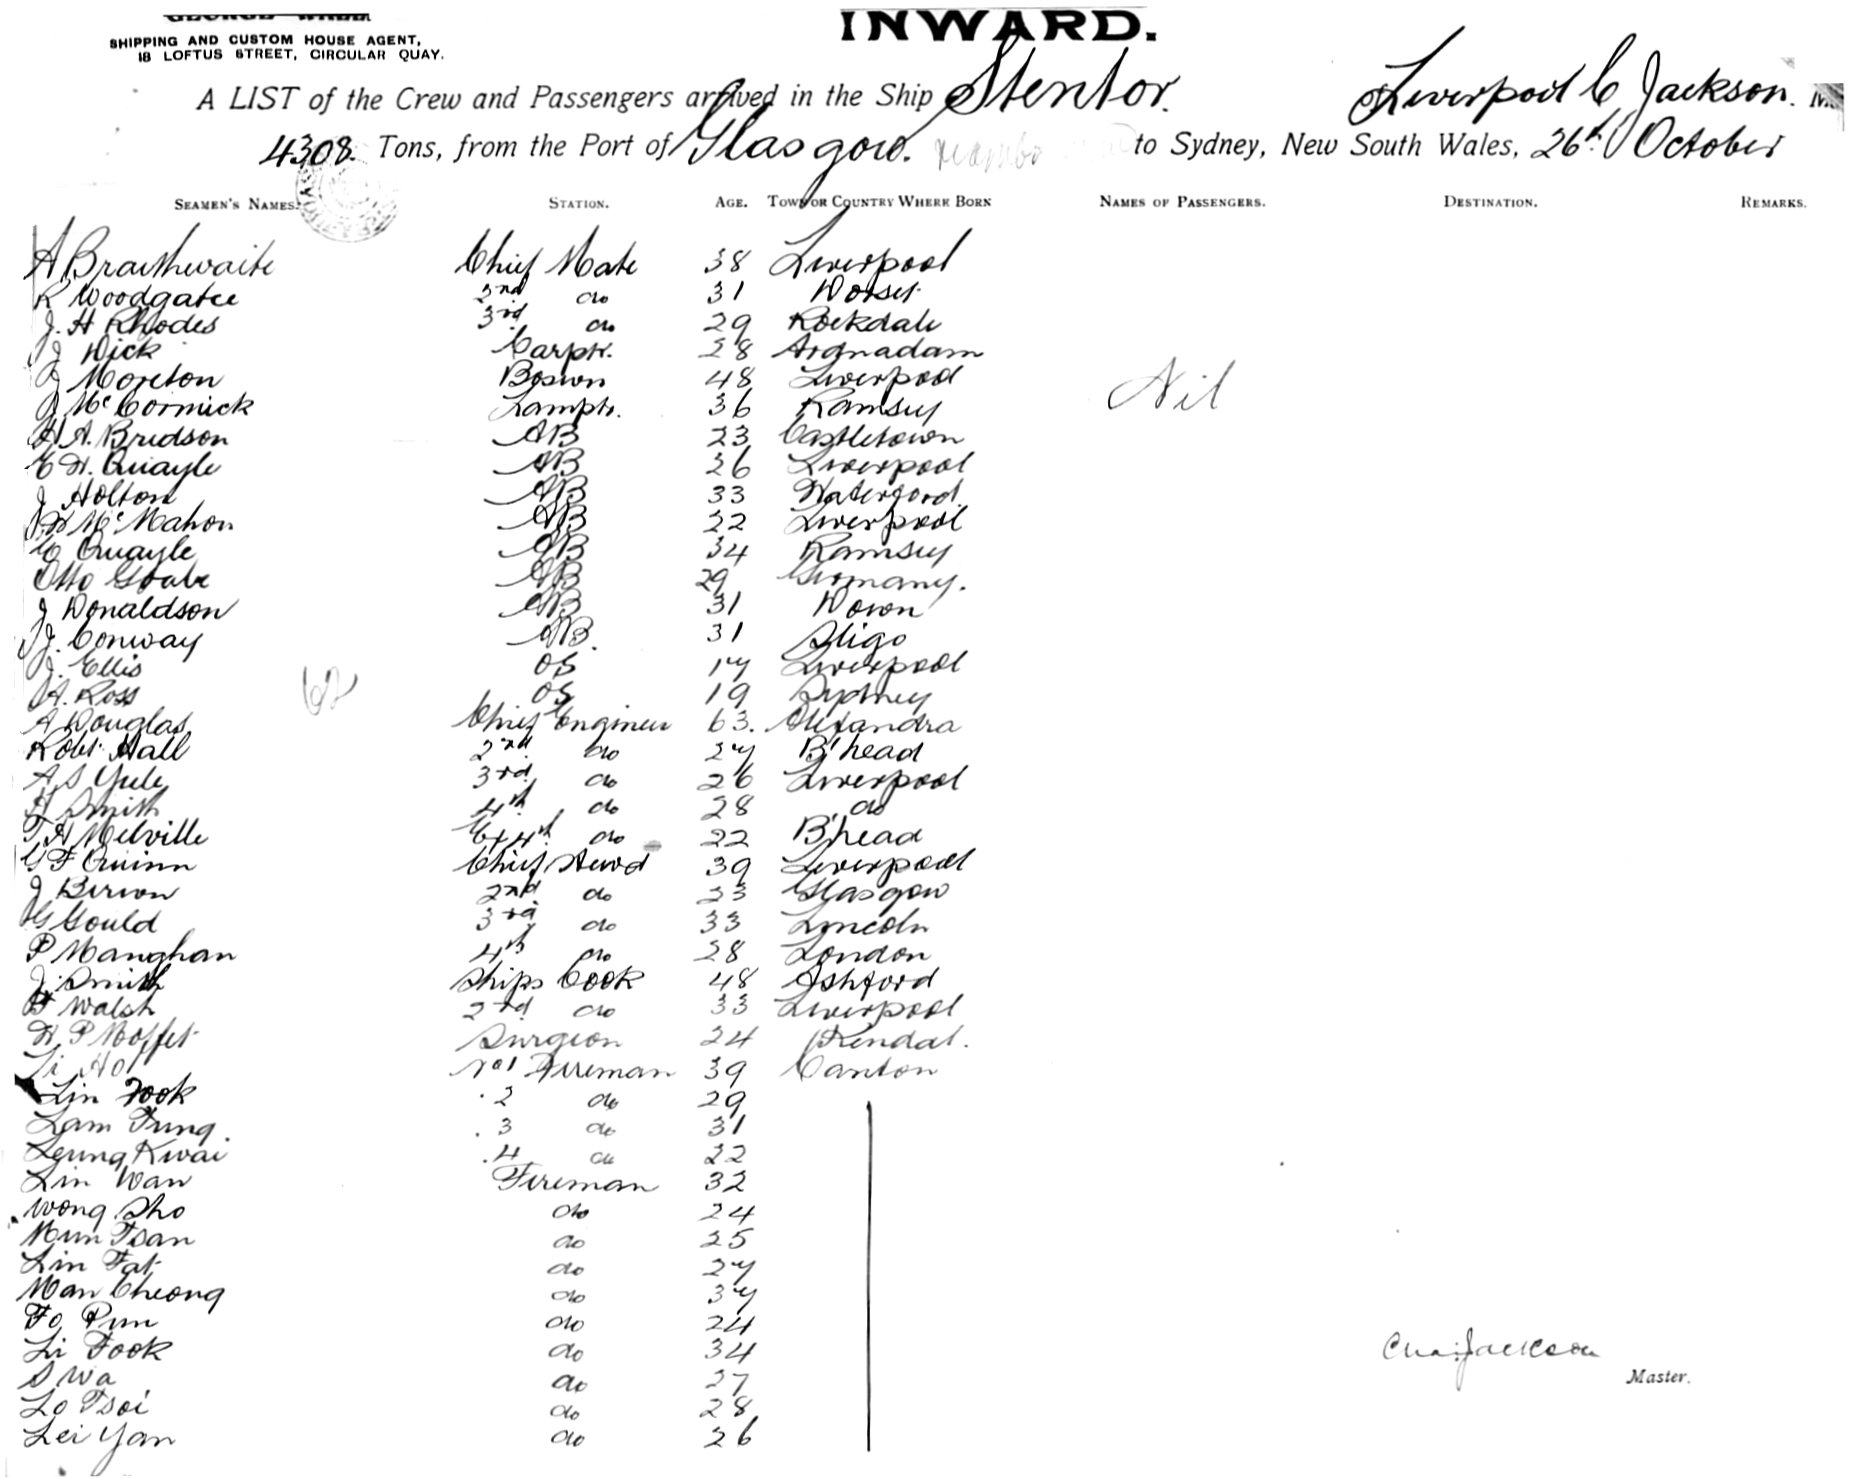 SHIPPING AND CUSTOM HOUSE AGENT,
18 LOFTUS STREET, CIRCULAR QUAY.
INWARD.
A LIST of the Crew and Passengers arrived in the Ship Stentor. Liverpool C Jackson.
4308. Tons, from the Port of Glasgow. to Sydney, New South Wales, 26th October
SEAMEN'S NAMES. STATION. AGE. TOWN OR COUNTRY WHERE BORN NAMES OF PASSENGERS. DESTINATION. REMARKS.
A Braithwaite Chief Mate 38 Liverpool
R Woodgate 2nd do 31 Dorset
J. H Rhodes 3rd do 29 Rockdale
J Dick Carptr. 28 Ardnadam
J Moreton Boswn 48 Liverpool
Nil
J McCormick Lamptr. 36 Ramsey
H A. Bridson AB 23 Castletown
E H. Quayle AB 26 Liverpool
J Holton AB 33 Waterford
J. H McMahon AB 22 Liverpool
C Quayle AB 34 Ramsey
Otto AB 29 Germany.
J Donaldson AB 31 Down
J. Conway AB. 31 Sligo
J. Ellis OS 17 Liverpool
62
A. Ross OS 19 Sydney
A Douglas Chief Engineer 63. Alexandra
Robt Hall 2nd do 27 B'head
A S Yule 3rd do 26 Liverpool
H Smith 4th do 28 do
T A Melville Ex 4th do 22 B'head
G F Quinn Chief Stewd 39 Liverpool
J Birion 2nd do 23 Glasgow
G Gould 3rd do 33 Lincoln
P Manghan 4th do 28 London
J. Smith Ships Cook 48 Ashford
F Walsh 2nd do 33 Liverpool
H P Moffet Surgeon 24 Kendal.
Li Ho No1 Fireman 39 Canton
Lin Fook 2 do 29
Lam Fung. 3 do 31
Leung Kwai 4 do 22
Lin Wan Fireman 32
Wong Sho do 24
Mun Tsan do 25
Lin Fat do 27
Man Cheong do 37
Fo Pun do 24
Li Fook do 34
Chas. Jackson
S Wa do 27
Master.
Lo Tsoi do 28
Lei Yan do 26